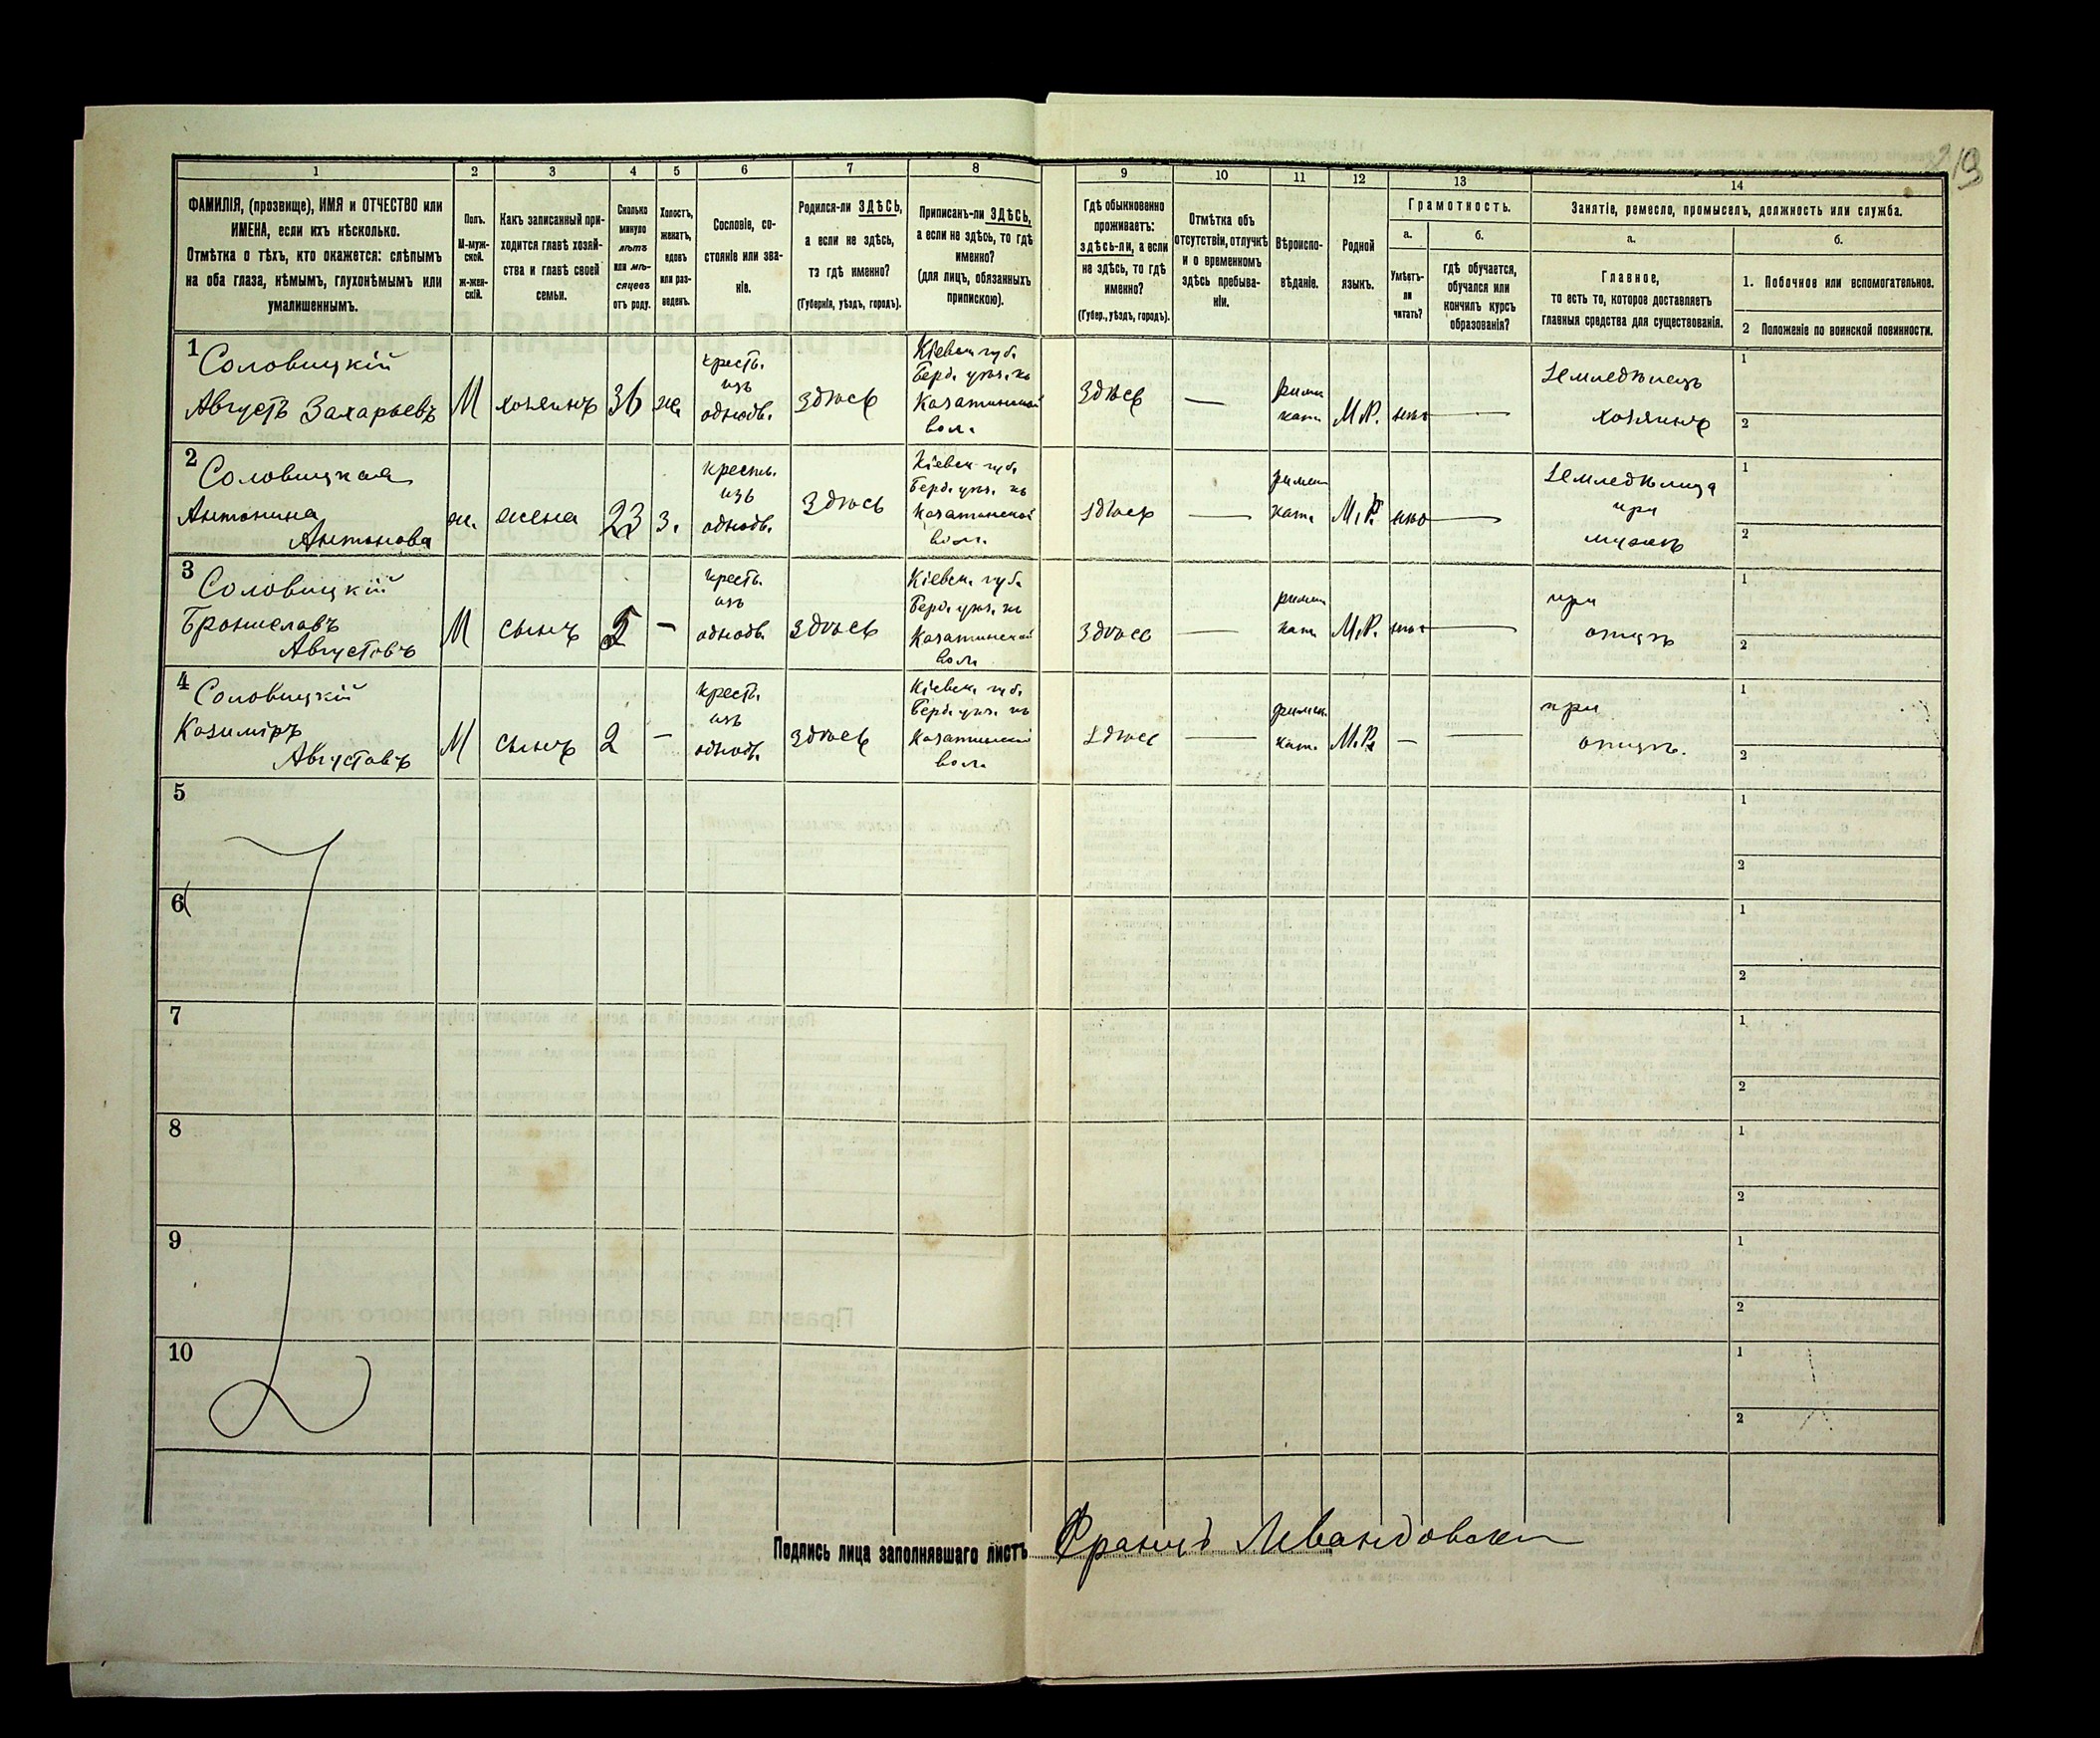 19
1 2 3 4 5 6 7 8 9 10 11 12 13 14
ФАМИЛІЯ, (прозвище), ИМЯ и ОТЧЕСТВО или
ИМЕНА, если ихъ нѣсколько.
Отмѣтка о тѣхъ, кто окажется: слѣпымъ
на оба глаза, нѣмымъ, глухонѣмымъ или
умалишеннымъ.
Полъ.
М-муж-
ской.
ж-жен-
скій.
Какъ записанный при-
ходится главѣ хозяй-
ства и главѣ своей
семьи.
Сколько
минуло
лѣтъ
или мѣ-
сяцевъ
отъ роду.
Холостъ,
женатъ,
вдовъ
или раз-
веденъ.
Сословіе, со-
стояніе или зва-
ніе.
Родился-ли ЗДѢСЬ,
а если не здѣсь,
то гдѣ именно?
(Губернія, уѣздъ, городъ).
Приписанъ-ли ЗДѢСЬ,
а если не здѣсь, то гдѣ
именно?
(для лицъ, обязанныхъ
припискою).
Гдѣ обыкновенно
проживаетъ:
здѣсь-ли, а если
не здѣсь, то гдѣ
именно?
(Губер., уѣздъ, городъ).
Отмѣтка объ
отсутствіи, отлучкѣ
и о временномъ
здѣсь пребыва-
ніи.
Вѣроиспо-
вѣданіе.
Родной
языкъ.
Грамотность.
а.
Умѣетъ-
ли
читать?
б.
гдѣ обучается,
обучался или
кончилъ курсъ
образованія?
Занятіе, ремесло, промыселъ, должность или служба.
а.
Главное,
то есть то, которое доставляетъ
главныя средства для существованія.
б.
1. Побочное или вспомогательное.
2 Положеніе по воинской повинности.
1
Соловицкій
Августъ Захарьевъ
М
хозяинъ
36
же.
кресть.
изъ
однодв.
здѣсь
Кіевск. губ.
Берд. уѣз. къ
Казатинской
вол.
здѣсь
—
римск
кат.
М.Р.
—
земледѣлецъ
хозяинъ
1
2
2
Соловицкая
Антонина
Антонова
ж.
жена
23
з.
кресть.
изъ
однодв.
здѣсь
Кіевск. губ.
Берд. уѣз. къ
Казатинской
вол.
здѣсь
—
римск
кат.
М.Р.
—
земледѣлица
при
мужѣ
1
2
3
Соловицкій
Брониславъ
Августовъ
М
сынъ
5
—
кресть.
изъ
однодв.
здѣсь
Кіевск. губ.
Берд. уѣз. къ
Казатинской
вол.
здѣсь
—
римск
кат.
М.Р.
—
при
отцѣ
1
2
4
Соловицкій
Казиміръ
Августовъ
М
сынъ
2
—
кресть.
изъ
однодв.
здѣсь
Кіевск. губ.
Берд. уѣз. къ
Казатинской
вол.
здѣсь
—
римск.
кат.
М.Р.
—
—
при
отцѣ.
1
2
5
1
2
6
1
2
7
1
2
8
1
2
9
1
2
10
1
2
Подпись лица заполнявшаго листъ Францъ Левандовски